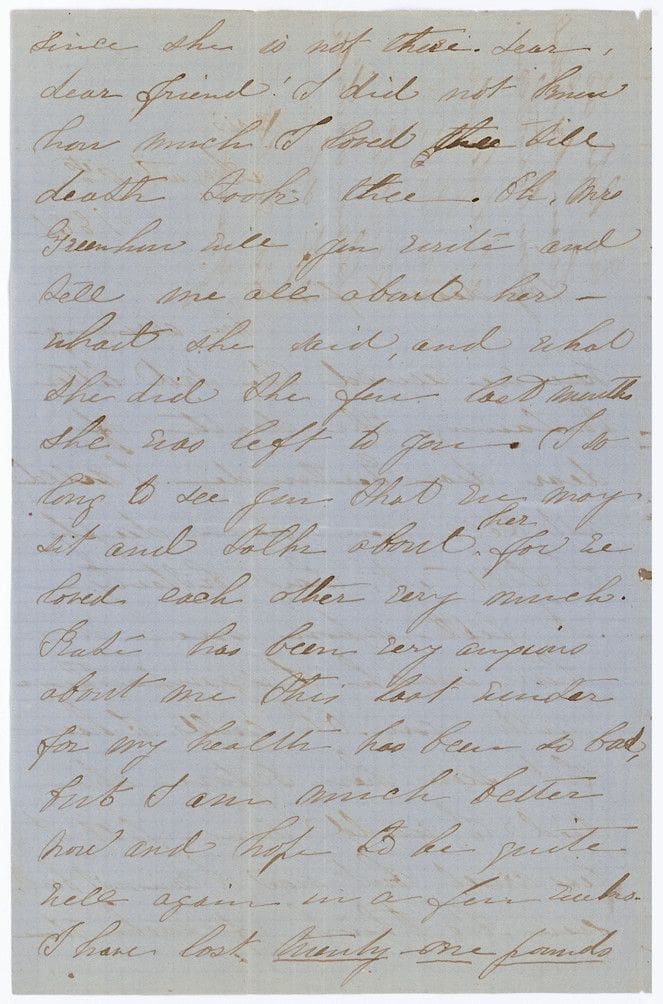 since she is not there. Dear,
dear friend! I did not know
how much I loved thee till
death took thee. Oh, Mrs
Greenhow will you write and
tell me all about her –
what she said, and what
she did the few last months
she was left to you. I so
long to see you that we may
sit and talk about her for we
loved each other very much.
Kate has been very anxious
about me this last winter
for my health has been so bad,
but I am much better
now and hope to be quite
well again in a few weeks.
I have lost twenty-one pounds